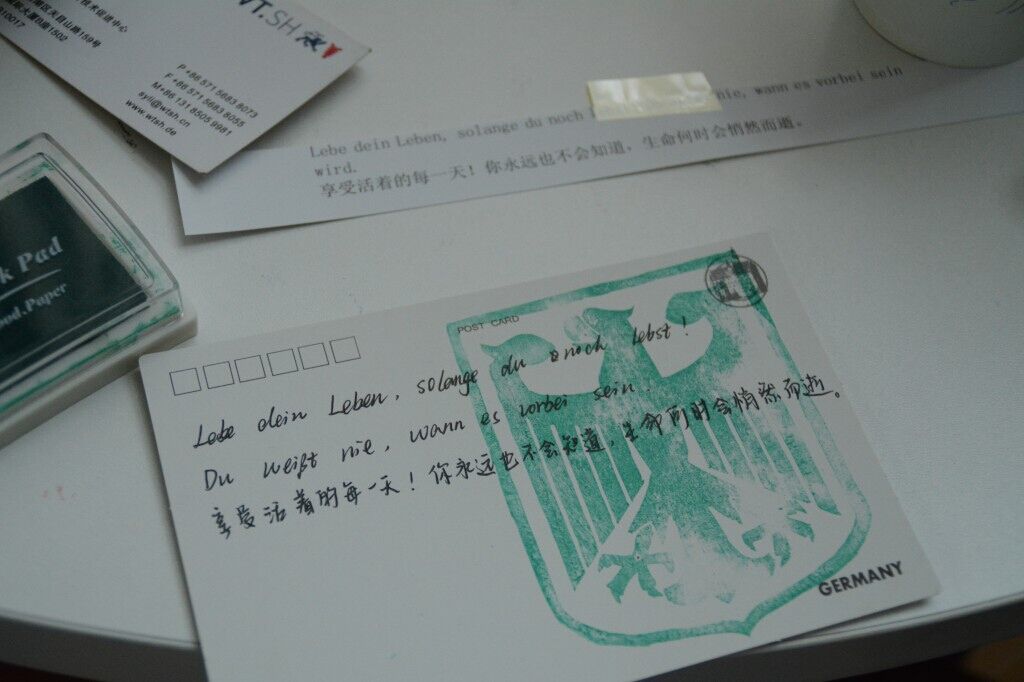 WT.SH
技术促进中心
天目山路159号
大厦B座1502
310017
P +86 571 5683 8073
F +86 571 5683 8055
M+86 131 8505 9981
syli@wtsh.cn
www.wtsh.de
Lebe dein Leben, solange du noch nie, wann es vorbei sein
wird.
享受活着的每一天！你永远也不会知道，生命何时会悄然而逝。
k Pad
ood.Paper
POST CARD
Lebe dein Leben, solange du noch lebst!
Du weißt nie, wann es vorbei sein.
享受活着的每一天！你永远也不会知道，生命何时会悄然而逝。
GERMANY